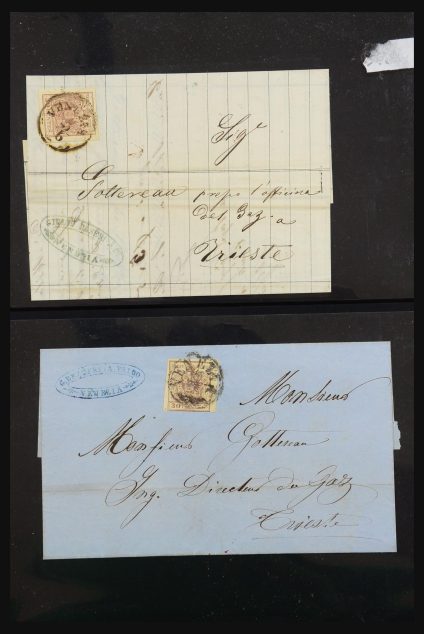 Sig.r
Sottereau presso l'officina
del Gaz a
Trieste
VENEZIA
30
VENEZIA
Monsieur
Monsieur Gottereau
Ing. Directeur du Gaz
Trieste